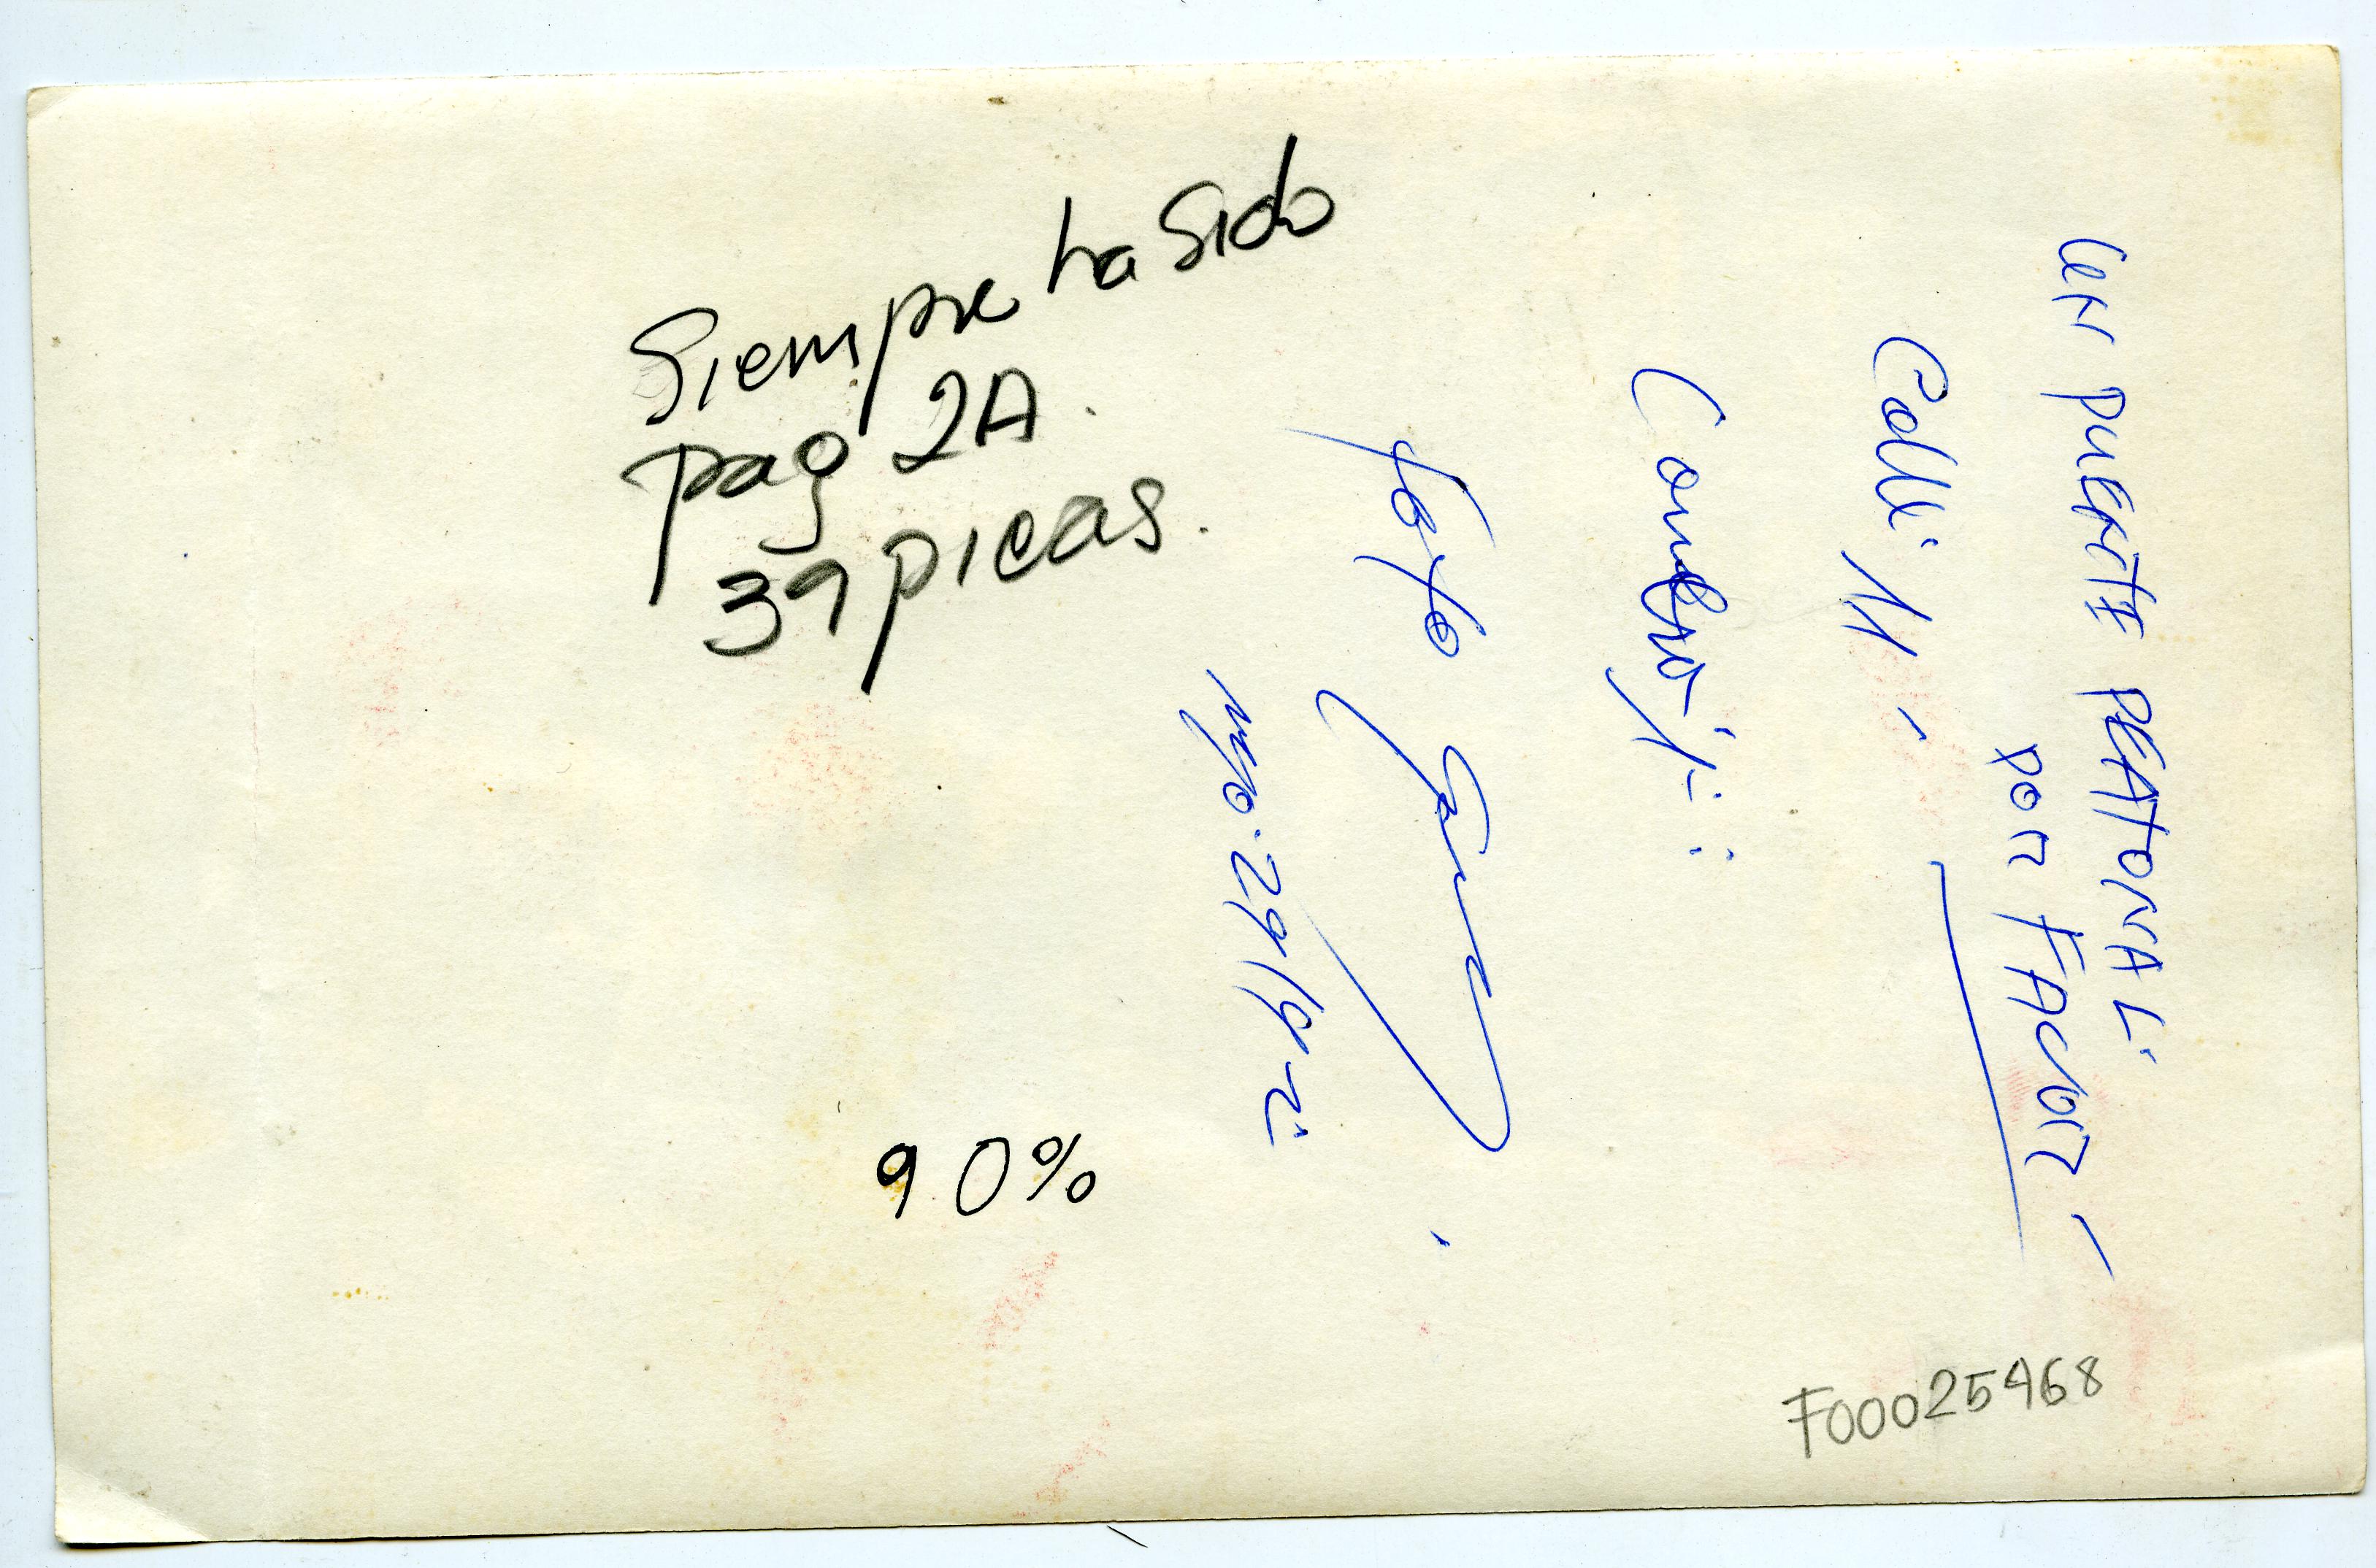 Siempre ha Sido
pag 2A.
39 picas.
90%
un PUENTE PEATONAL.
por FAVOR
Calli
foto
myo. 29/92.
F00025468